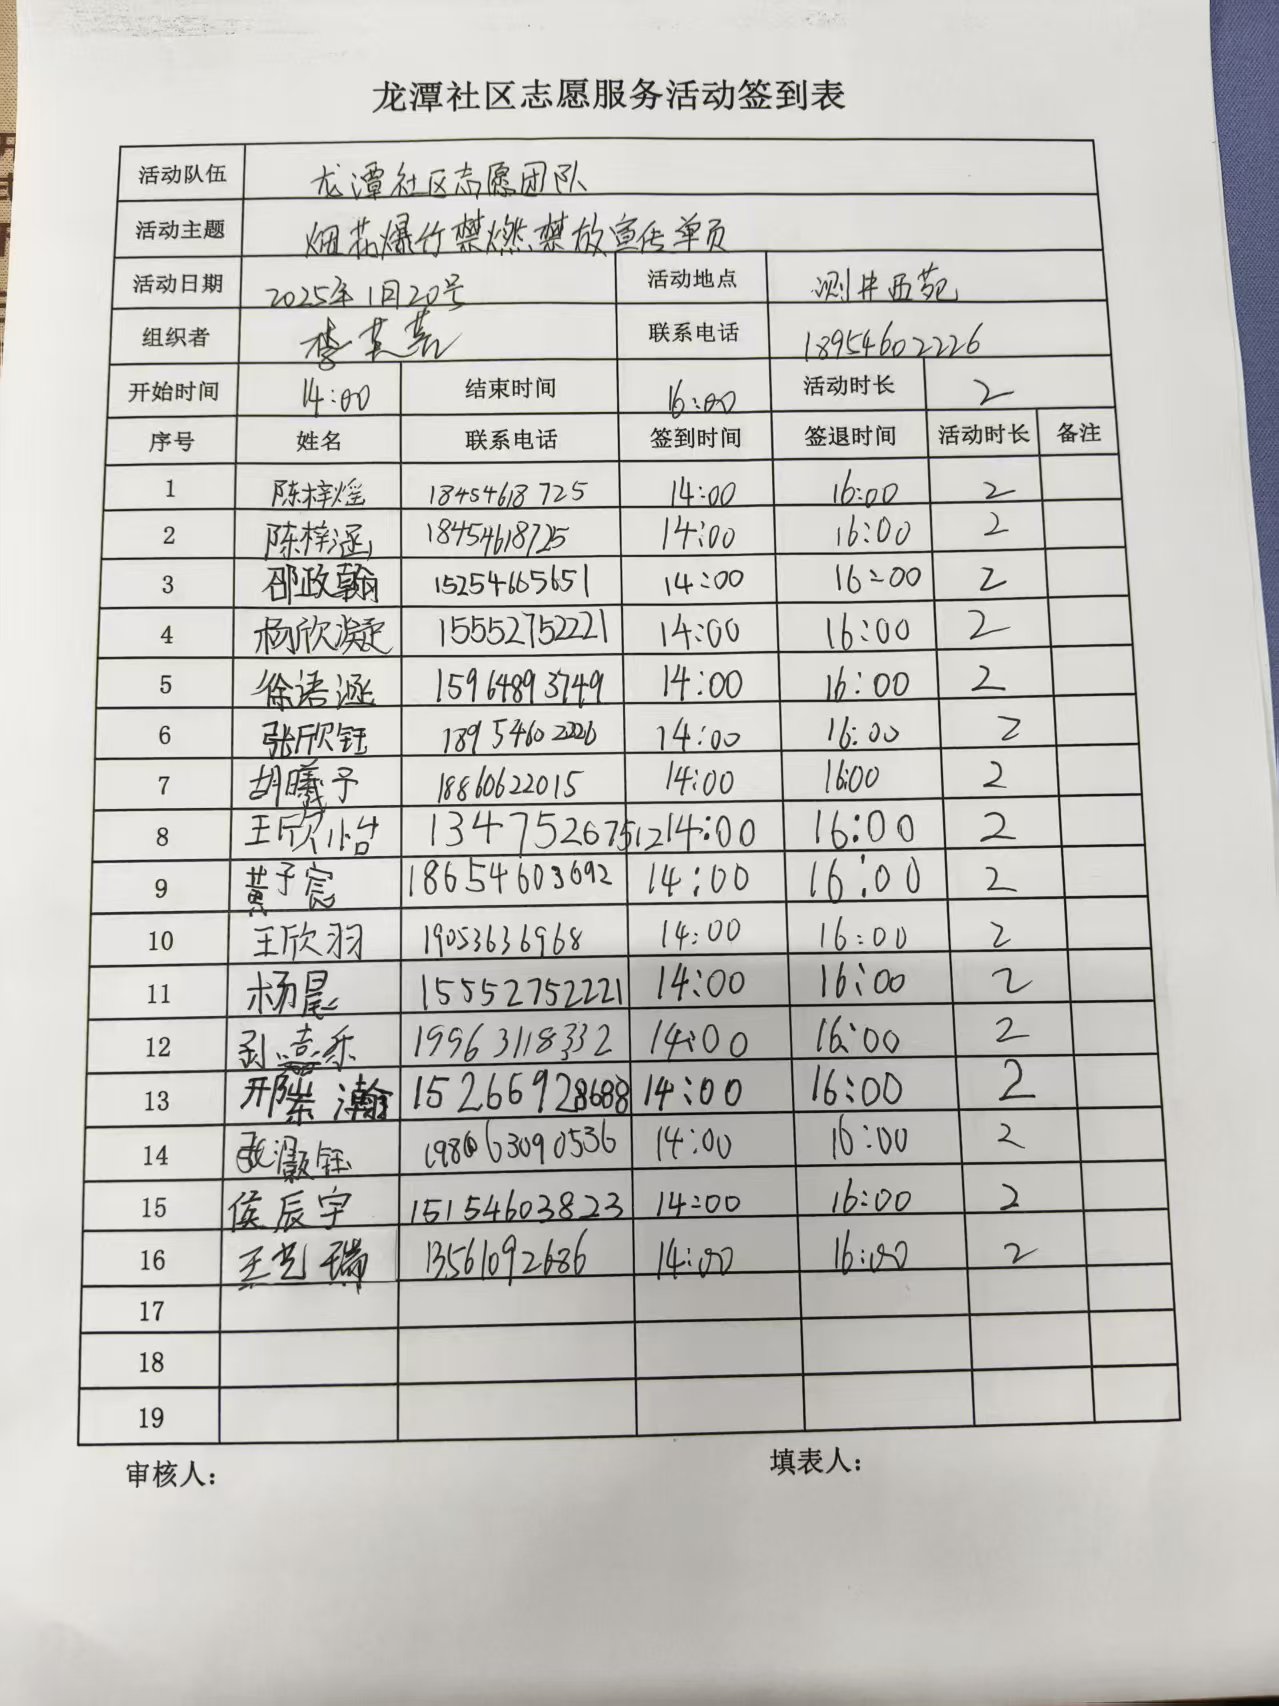 龙潭社区志愿服务活动签到表
活动队伍 龙潭社区志愿团队
活动主题 烟花爆竹禁燃禁放宣传单页
活动日期 2025年1月20号 活动地点 测井西苑
组织者 李 联系电话 18954602226
开始时间 14:00 结束时间 16:00 活动时长 2
序号 姓名 联系电话 签到时间 签退时间 活动时长 备注
1 陈梓瑶 18454618725 14:00 16:00 2
2 陈梓涵 18454618725 14:00 16:00 2
3 邵政翰 15254665651 14:00 16:00 2
4 杨欣凝 15552752221 14:00 16:00 2
5 徐语涵 15964893749 14:00 16:00 2
6 张欣钰 18954602226 14:00 16:00 2
7 胡曦予 18860622015 14:00 16:00 2
8 王欣怡 13475267512 14:00 16:00 2
9 黄子宸 18654603692 14:00 16:00 2
10 王欣羽 19053636968 14:00 16:00 2
11 杨晨 15552752221 14:00 16:00 2
12 嘉乐 19963118332 14:00 16:00 2
13 瀚 15266928688 14:00 16:00 2
14 张灏钰 14:00 16:00 2
15 侯辰宇 15154603823 14:00 16:00 2
16 王艺瑞 13561092686 14:00 16:00 2
17
18
19
审核人： 填表人：